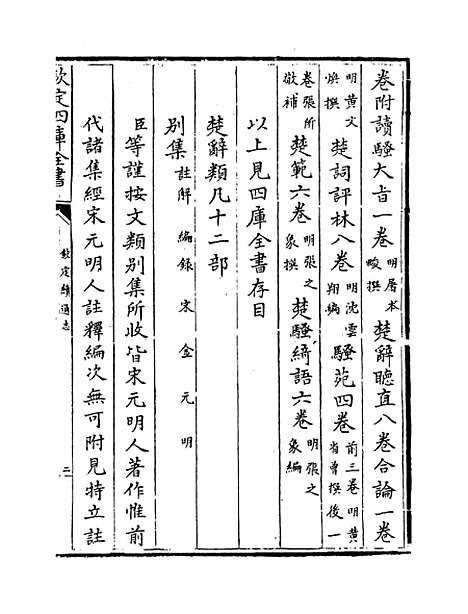 卷附讀騷大旨一卷明屠本畯撰楚辭聽直八卷合論一卷
明黃文煥撰楚詞評林八卷明沈雲翔編騷苑四卷前三卷明黃省曾撰後一
卷張所敬補楚範六卷明張之象撰楚騷綺語六卷明張之象編
以上見四庫全書存目
楚辭類凡十二部
別集註解 編錄 宋 金 元 明
臣等謹按文類別集所收皆宋元明人著作惟前
代諸集經宋元明人註釋編次無可附見特立註
欽定四庫全書
欽定續通志
二